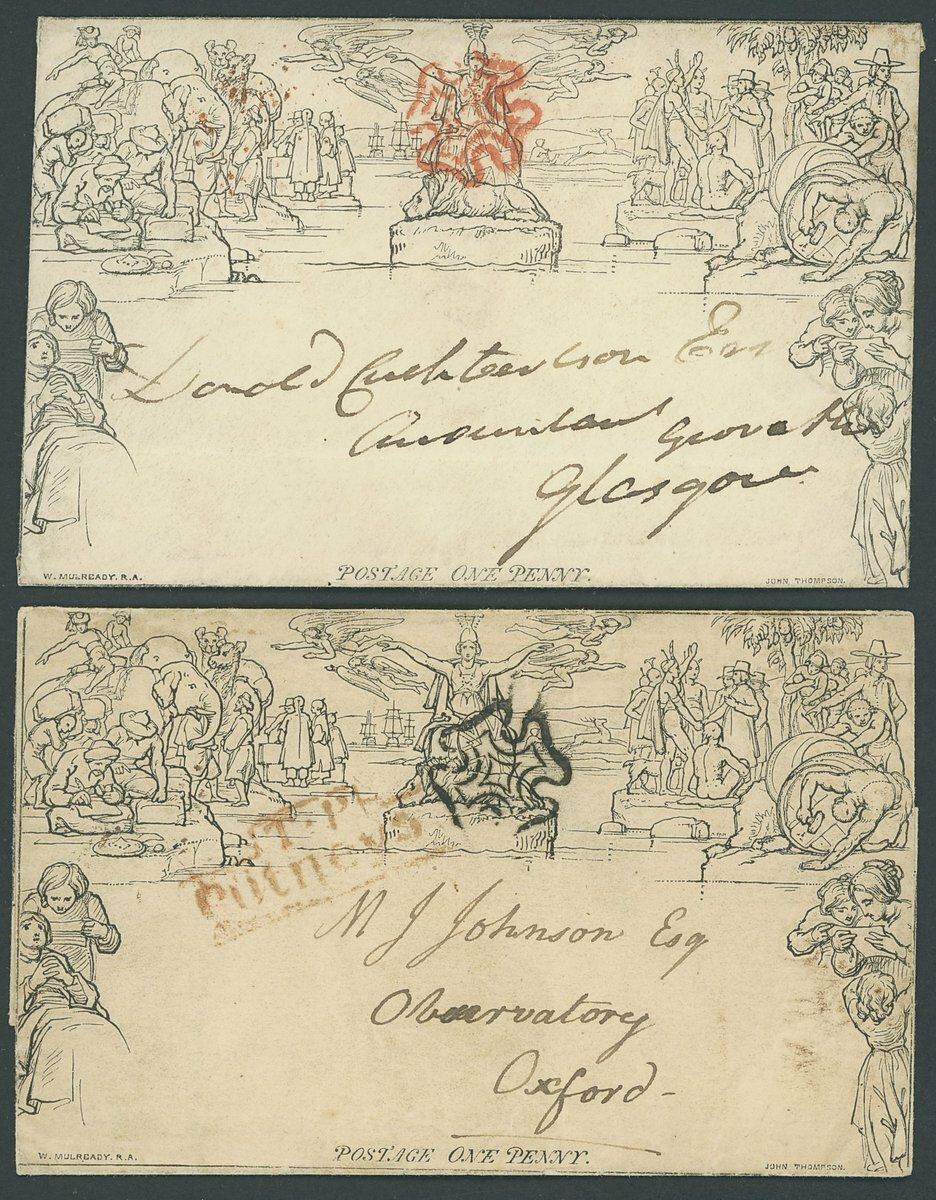 Donald Cuthbertson Esq
Accountant
Glasgow
W. MULREADY. R.A.
POSTAGE ONE PENNY.
JOHN THOMPSON.
M J Johnson Esq
Observatory
Oxford
W. MULREADY. R.A.
POSTAGE ONE PENNY.
JOHN THOMPSON.